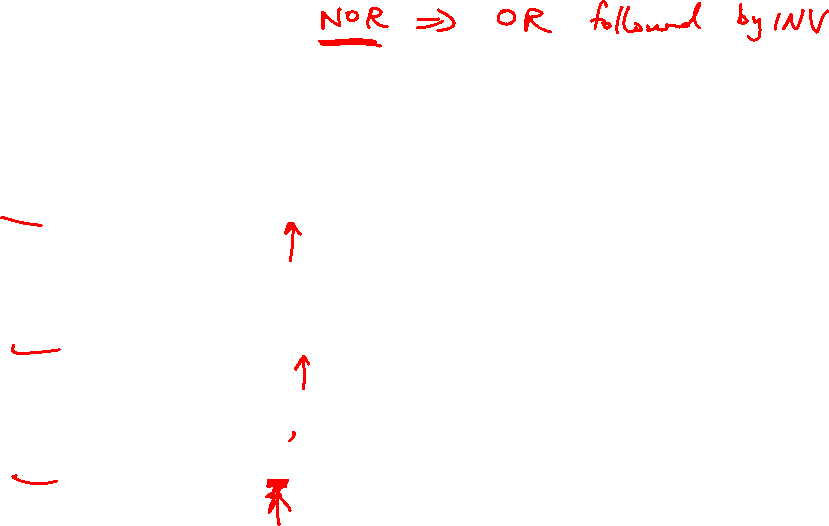 NOR ⇒ OR followed by INV